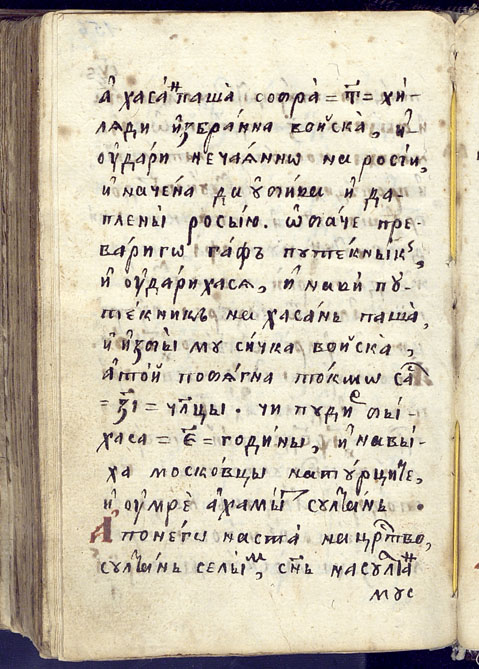 а҆ хаса́н паша̀ собра̀ = т҃ = хи́-
ляди и҆збра́нна во́йска, и҆
ᲂу҆да́ри неча́яннѡ на росі́и,
и҆ наче́на да ꙋ҆би́ва и҆ да
плени́ росі́ю. ѡ҆ба́че пре-
варигѡ гра́фъ
и҆ ᲂу҆дарихася, и҆ нави́ пу-
те́кникъ на хаса́нь паша̀,
и҆ и҆зби́ му си́чка во́йска,
а҆ то́й побѣ́гна то́кмѡ са
= з҃і = чл҃цы. чи пуди би́-
хаса = є҃ = годи́ны, и҆ навы́-
ха моско́вцы на ту́рците,
и҆ ᲂу҆мрѐ а҆хамы́т султа́нь.
А по не́гѡ наста̀ на црⷭ҇тво,
султа́нь селы́м, сн҃ь на султан
мус